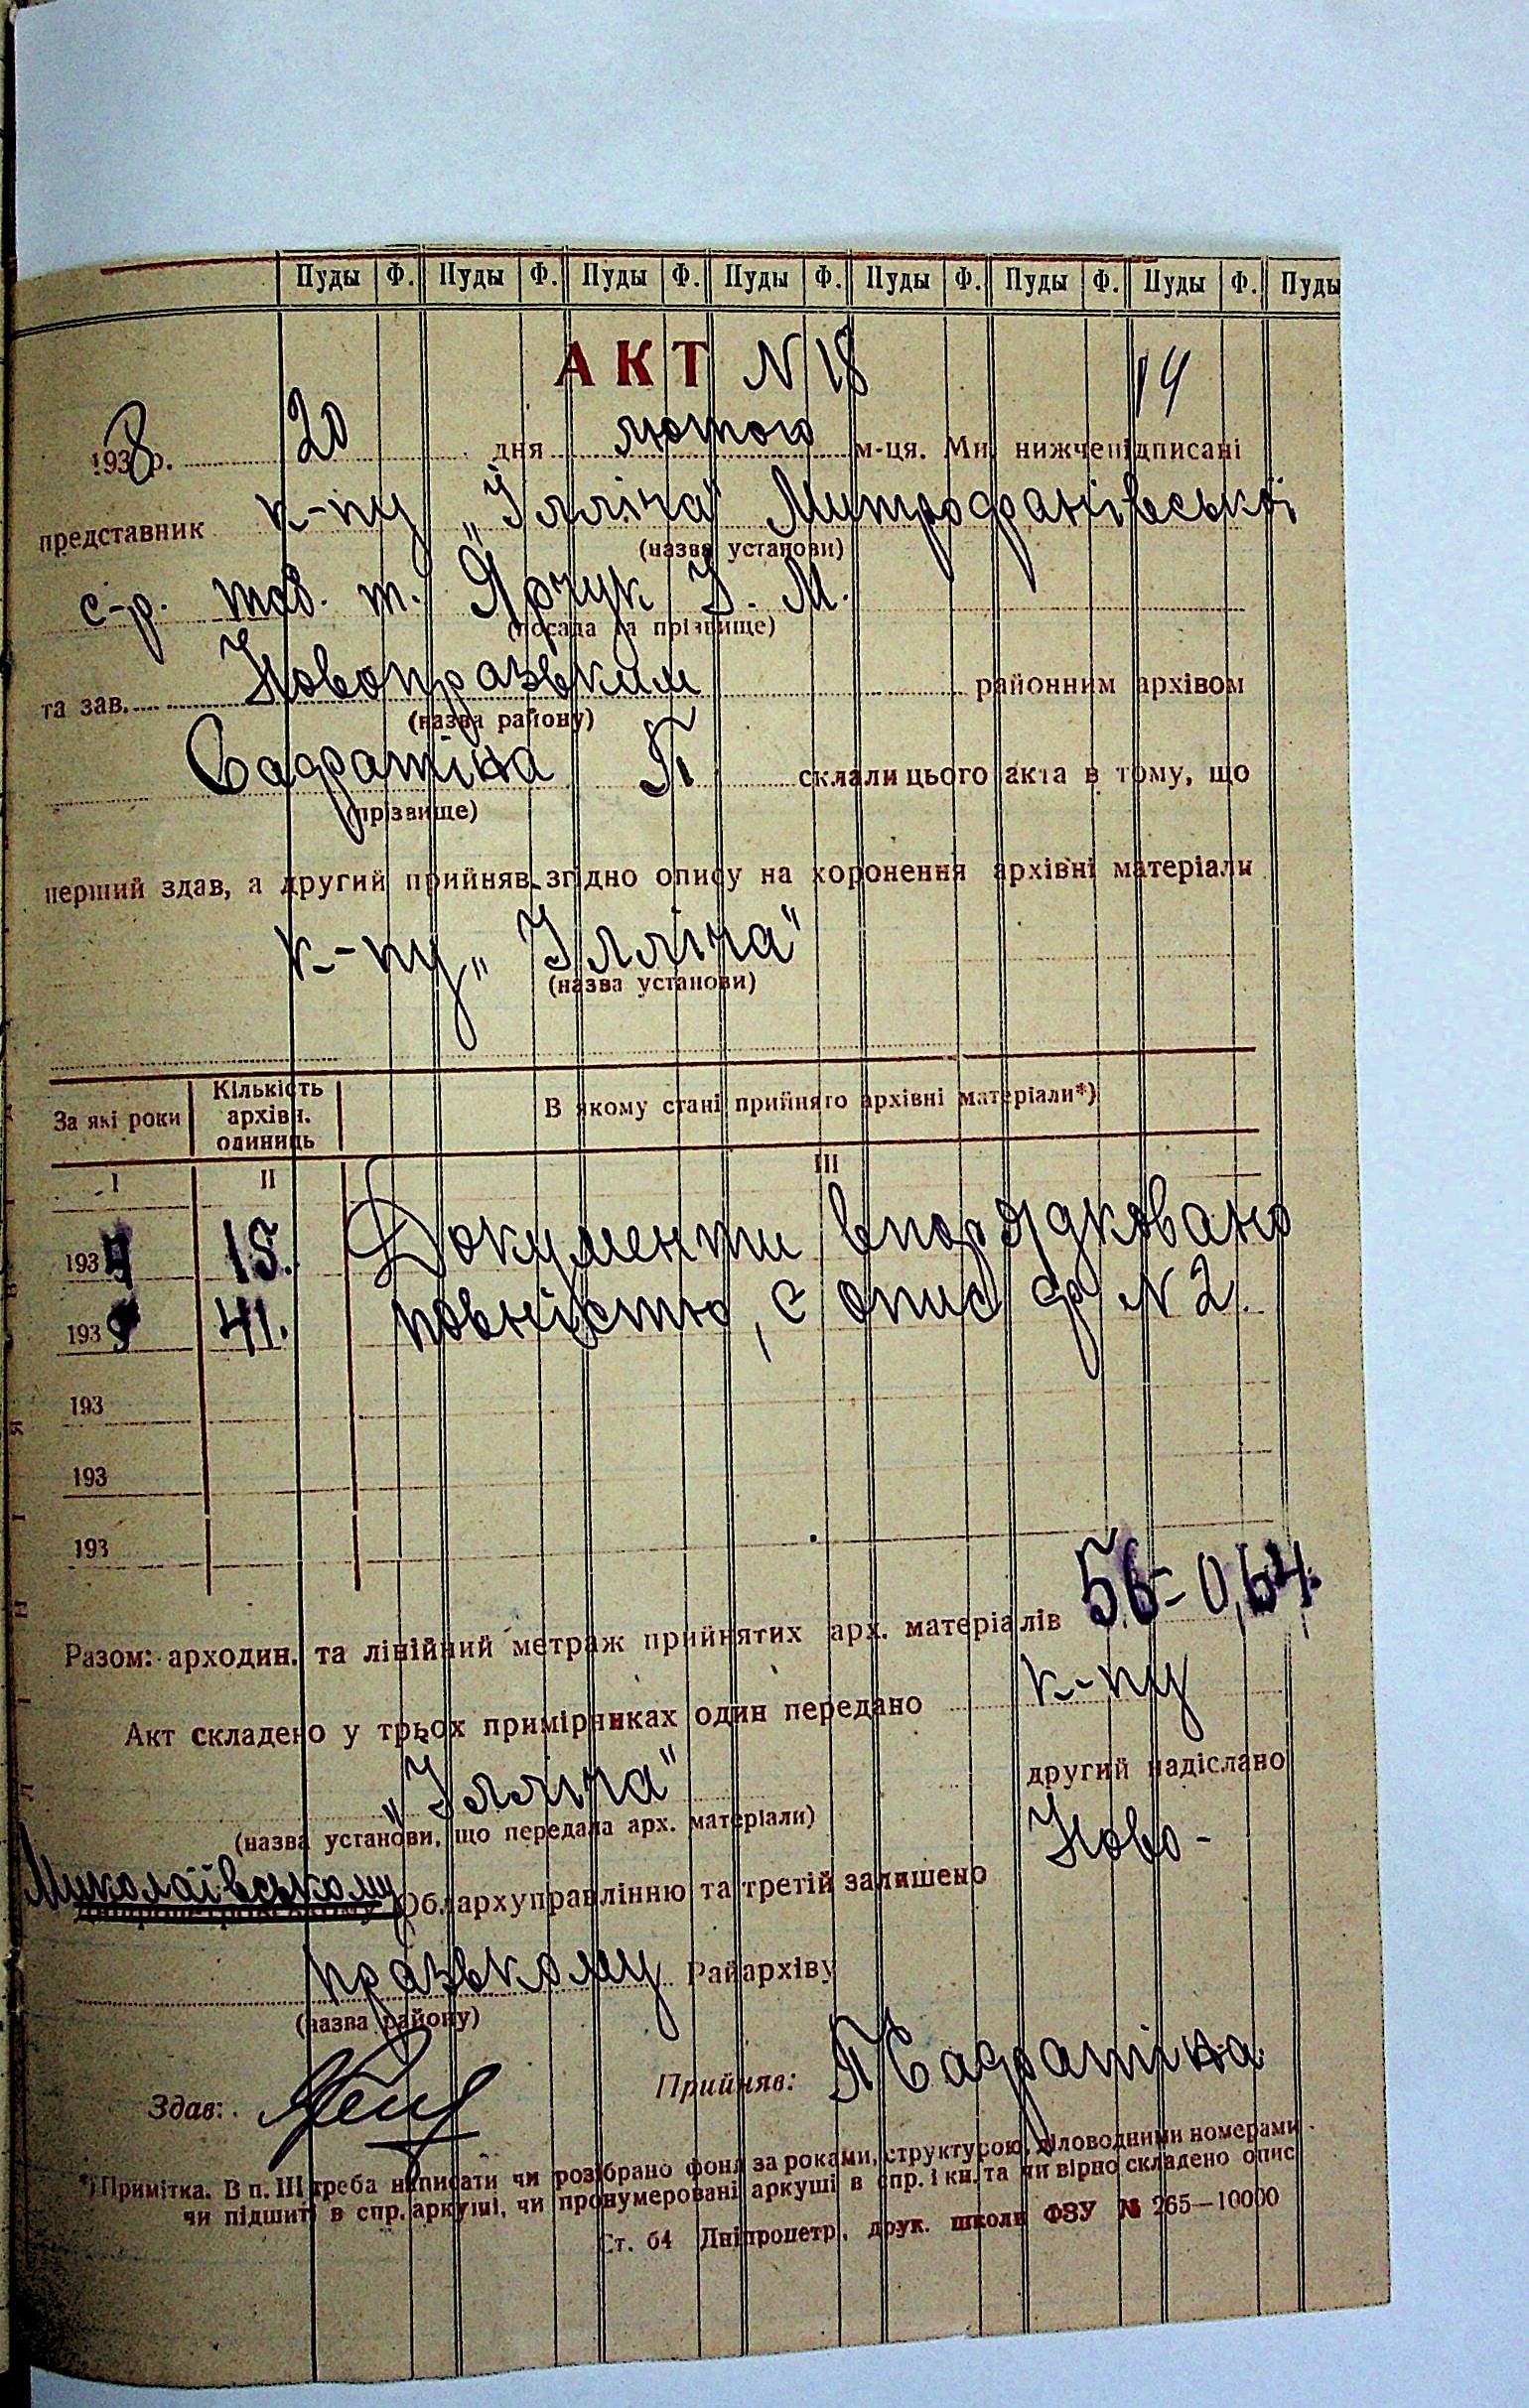 Пуды Ф. Пуды Ф. Пуды Ф. Пуды Ф. Пуды Ф. Пуды Ф. Пуды Ф. Пуды
АКТ N 18
14
1938 р. 20 дня лютого м-ця. Ми нижчепідписані
представник к-пу „Ілліча" Митрофанівської
(назва установи)
с-р. тов. т. Ярчук І. М.
(посада та прізвище)
та зав. Новопразьким районним архівом
(назва району)
Сафатіна П склали цього акта в тому, що
(прізвище)
перший здав, а другий прийняв згідно опису на хоронення архівні матеріали
к-пу „Ілліча"
(назва установи)
За які роки Кількість архівн. одиниць В якому стані прийнято архівні матеріали*)
I II III
193 15. Документи впорядковано
193 41. повністю, є опис ф N 2.
193
193
193
Разом: арходин. та лінійний метраж прийнятих арх. матеріалів 56 = 0,64.
Акт складено у трьох примірниках один передано к-пу
„Ілліча" другий надіслано
(назва установи, що передала арх. матеріали)
Миколаївському Облархуправлінню та третій залишено Ново-
празькому Райархіву
(назва району)
Здав: Прийняв: П Сафатіна
*) Примітка. В п. III треба написати чи розібрано фонд за роками, структурою, діловодними номерами
чи підшиті в спр. аркуші, чи пронумеровані аркуші в спр. і кн. та чи вірно складено опис
Ст. 64 Дніпропетр. друк. школи ФЗУ № 265—10000